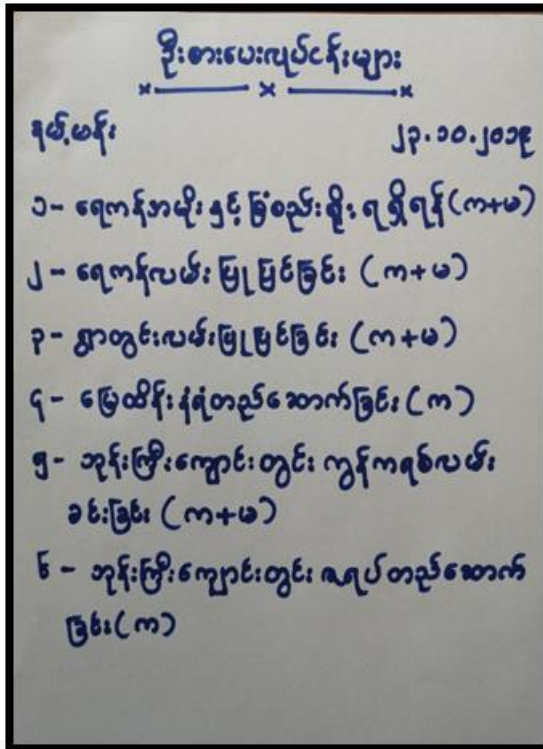 ဦးစားပေးလုပ်ငန်းများ
ရပ်မန်း ၂၃.၁၀.၂၀၁၉
၁- ရေကန်အမိုး နှင့် ခြံစည်းရိုး ရရှိရန် (က+မ)
၂- ရေကန်လမ်း ပြုပြင်ခြင်း (က+မ)
၃- ရွာတွင်းလမ်းပြုပြင်ခြင်း (က+မ)
၄- မြေထိန်းနံရံတည်ဆောက်ခြင်း (က)
၅- ဘုန်းကြီးကျောင်းတွင်း ကွန်ကရစ်လမ်း
ခင်းခြင်း (က+မ)
၆- ဘုန်းကြီးကျောင်းတွင်း ဇရပ်တည်ဆောက်
ခြင်း (က)